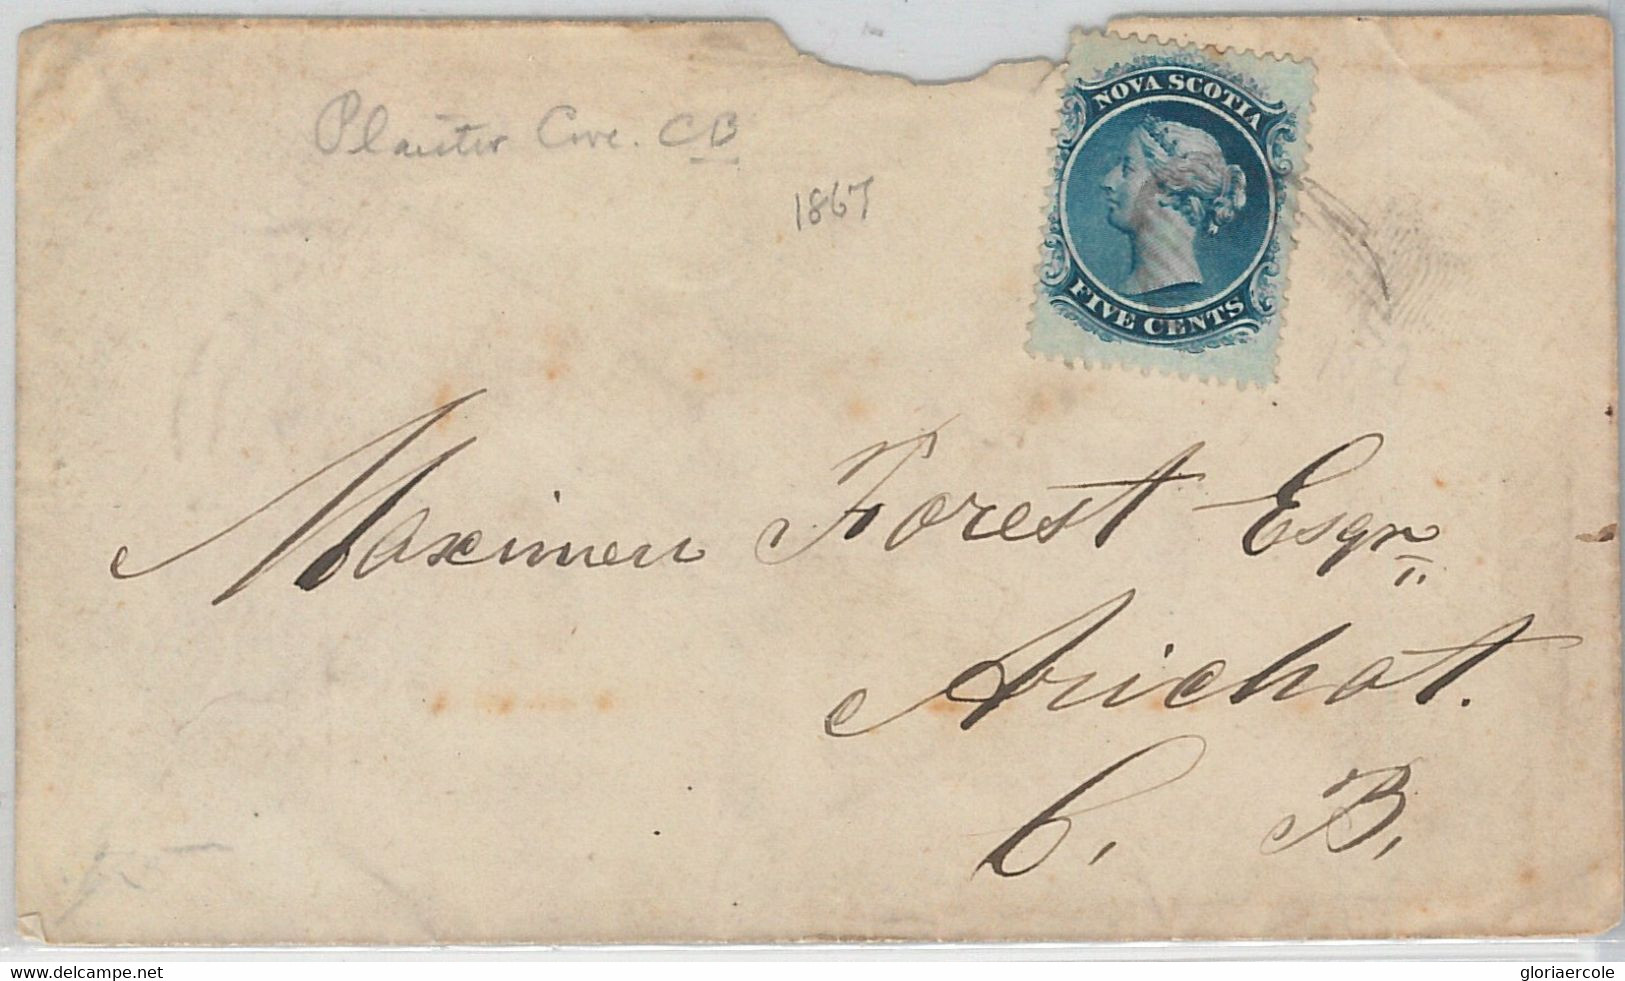 Plaister Cove. CB
1867
NOVA SCOTIA
FIVE CENTS
Maximen Forest Esqr
Arichat.
C. B.
www.delcampe.net
gloriaercole